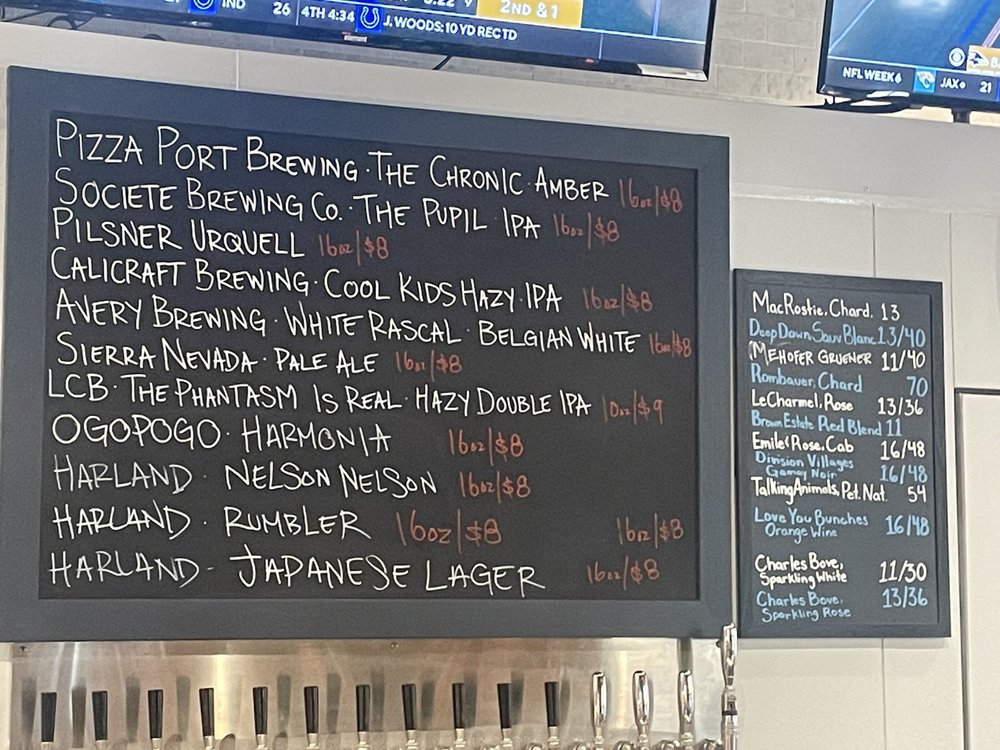 IND 26 4TH 4:34 J. WOODS: 10 YD REC TD
2ND & 1
NFL WEEK 6 JAX 21
PIZZA PORT BREWING · THE CHRONIC · AMBER 16oz/$8
SOCIETE BREWING CO. · THE PUPIL · IPA 16oz/$8
PILSNER URQUELL 16oz/$8
CALICRAFT BREWING · COOL KIDS HAZY · IPA 16oz/$8
AVERY BREWING · WHITE RASCAL · BELGIAN WHITE 16oz/$8
SIERRA NEVADA · PALE ALE 16oz/$8
LCB · THE PHANTASM IS REAL · HAZY DOUBLE IPA 10oz/$9
OGOPOGO · HARMONIA 16oz/$8
HARLAND · NELSON NELSON 16oz/$8
HARLAND · RUMBLER 16oz/$8 16oz/$8
HARLAND · JAPANESE LAGER 16oz/$8
MacRostie, Chard. 13
Deep Down, Sauv Blanc 13/40
MEHOFER GRUENER 11/40
Rombauer, Chard 70
Le Charmel, Rose 13/36
Brown Estate Red Blend 11
Emile Rose, Cab 16/48
Division Villages
Gamay Noir 16/48
Talking Animals, Pet. Nat. 54
Love You Bunches
Orange Wine 16/48
Charles Bove,
Sparkling White 11/30
Charles Bove,
Sparkling Rose 13/36